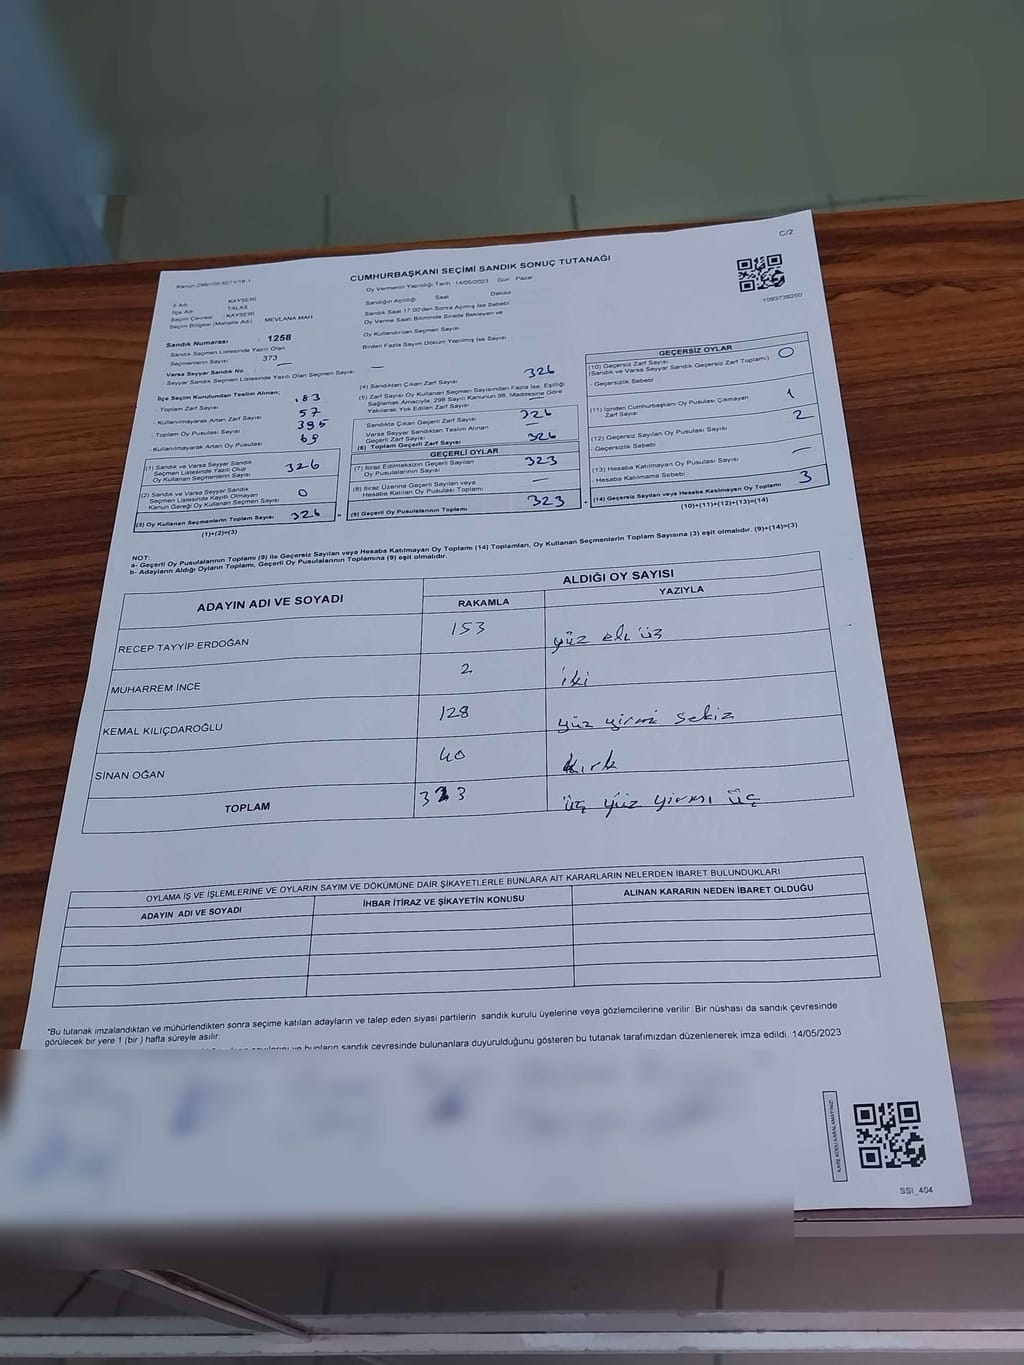 C/2
Kanun:298/105,6271/18-1
CUMHURBAŞKANI SEÇİMİ SANDIK SONUÇ TUTANAĞI
Oy Vermenin Yapıldığı Tarih :14/05/2023 Gün : Pazar
1093738250
İl Adı KAYSERİ
İlçe Adı TALAS
Seçim Çevresi KAYSERİ
Seçim Bölgesi (Mahalle Adı) MEVLANA MAH
Sandığın Açıldığı Saat Dakika
Sandık Saat 17.00'den Sonra Açılmış İse Sebebi
Oy Verme Saati Bitiminde Sırada Bekleyen ve
Oy Kullandırılan Seçmen Sayısı
Birden Fazla Sayım Döküm Yapılmış İse Sayısı
Sandık Numarası : 1258
Sandık Seçmen Listesinde Yazılı Olan
Seçmenlerin Sayısı 373
Varsa Seyyar Sandık No —
- Seyyar Sandık Seçmen Listesinde Yazılı Olan Seçmen Sayısı —
İlçe Seçim Kurulundan Teslim Alınan;
- Toplam Zarf Sayısı
- Kullanılmayarak Artan Zarf Sayısı 57
- Toplam Oy Pusulası Sayısı
- Kullanılmayarak Artan Oy Pusulası
(1) Sandık ve Varsa Seyyar Sandık
Seçmen Listesinde Yazılı Olup
Oy Kullanan Seçmenlerin Sayısı 326
(2) Sandık ve Varsa Seyyar Sandık
Seçmen Listesinde Kayıtlı Olmayan
Kanun Gereği Oy Kullanan Seçmen Sayısı 0
(3) Oy Kullanan Seçmenlerin Toplam Sayısı 326
(1)+(2)=(3)
(4) Sandıktan Çıkan Zarf Sayısı 326
(5) Zarf Sayısı Oy Kullanan Seçmen Sayısından Fazla İse, Eşitliği
Sağlamak Amacıyla; 298 Sayılı Kanunun 98. Maddesine Göre
Yakılarak Yok Edilen Zarf Sayısı —
Sandıkta Çıkan Geçerli Zarf Sayısı 326
Varsa Seyyar Sandıktan Teslim Alınan
Geçerli Zarf Sayısı —
(6) Toplam Geçerli Zarf Sayısı 326
GEÇERLİ OYLAR
(7) İtiraz Edilmeksizin Geçerli Sayılan
Oy Pusulalarının Sayısı 323
(8) İtiraz Üzerine Geçerli Sayılan veya
Hesaba Katılan Oy Pusulası Toplamı —
(9) Geçerli Oy Pusulalarının Toplamı 323
GEÇERSİZ OYLAR
(10) Geçersiz Zarf Sayısı 0
(Sandık ve Varsa Seyyar Sandık Geçersiz Zarf Toplamı)
- Geçersizlik Sebebi
(11) İçinden Cumhurbaşkanı Oy Pusulası Çıkmayan
Zarf Sayısı 1
(12) Geçersiz Sayılan Oy Pusulası Sayısı 2
- Geçersizlik Sebebi
(13) Hesaba Katılmayan Oy Pusulası Sayısı —
- Hesaba Katılmama Sebebi
(14) Geçersiz Sayılan veya Hesaba Katılmayan Oy Toplamı 3
(10)+(11)+(12)+(13)=(14)
NOT:
a- Geçerli Oy Pusulalarının Toplamı (9) ile Geçersiz Sayılan veya Hesaba Katılmayan Oy Toplamı (14) Toplamları, Oy Kullanan Seçmenlerin Toplam Sayısına (3) eşit olmalıdır. (9)+(14)=(3)
b- Adayların Aldığı Oyların Toplamı, Geçerli Oy Pusulalarının Toplamına (9) eşit olmalıdır.
ADAYIN ADI VE SOYADI ALDIĞI OY SAYISI
RAKAMLA YAZIYLA
RECEP TAYYİP ERDOĞAN 153 yüz elli üç
MUHARREM İNCE 2 iki
KEMAL KILIÇDAROĞLU 128 yüz yirmi sekiz
SİNAN OĞAN 40 kırk
TOPLAM 323 üç yüz yirmi üç
OYLAMA İŞ VE İŞLEMLERİNE VE OYLARIN SAYIM VE DÖKÜMÜNE DAİR ŞİKAYETLERLE BUNLARA AİT KARARLARIN NELERDEN İBARET BULUNDUKLARI
ADAYIN ADI VE SOYADI İHBAR İTİRAZ VE ŞİKAYETİN KONUSU ALINAN KARARIN NEDEN İBARET OLDUĞU
"Bu tutanak imzalandıktan ve mühürlendikten sonra seçime katılan adayların ve talep eden siyasi partilerin sandık kurulu üyelerine veya gözlemcilerine verilir. Bir nüshası da sandık çevresinde
görülecek bir yere 1 (bir) hafta süreyle asılır.
ve bunların sandık çevresinde bulunanlara duyurulduğunu gösteren bu tutanak tarafımızdan düzenlenerek imza edildi. 14/05/2023
KARE KODU KARALAMAYINIZ!
SSI_404